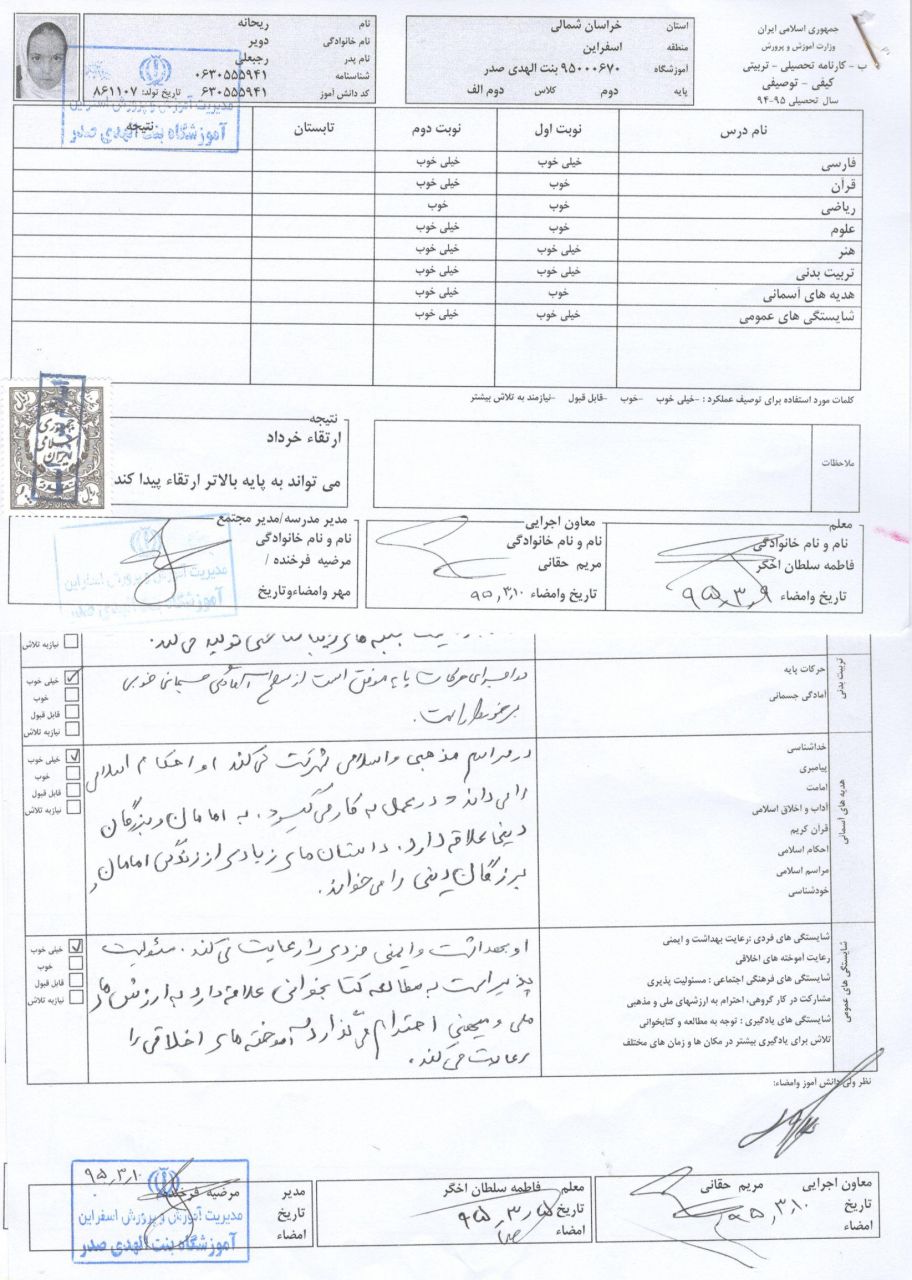 جمهوری اسلامی ایران
وزارت آموزش و پرورش
ب - کارنامه تحصیلی - تربیتی
کیفی - توصیفی
سال تحصیلی ۹۵-۹۴
استان خراسان شمالی
منطقه اسفراین
آموزشگاه ۹۵۰۰۰۶۷۰ بنت الهدی صدر
پایه دوم کلاس دوم الف
نام ریحانه
نام خانوادگی دویر
نام پدر رجبعلی
شناسنامه ۰۶۳۰۵۵۵۹۴۱
کد دانش آموز ۶۳۰۵۵۵۹۴۱ تاریخ تولد: ۸۶۱۱۰۷
مدیریت آموزش و پرورش اسفراین
آموزشگاه بنت الهدی صدر
نام درس نوبت اول نوبت دوم تابستان نتیجه
فارسی خیلی خوب خیلی خوب
قرآن خوب خیلی خوب
ریاضی خوب خوب
علوم خوب خیلی خوب
هنر خیلی خوب خیلی خوب
تربیت بدنی خیلی خوب خیلی خوب
هدیه های آسمانی خوب خیلی خوب
شایستگی های عمومی خیلی خوب خیلی خوب
کلمات مورد استفاده برای توصیف عملکرد : -خیلی خوب -خوب -قابل قبول -نیازمند به تلاش بیشتر
ملاحظات
نتیجه
ارتقاء خرداد
می تواند به پایه بالاتر ارتقاء پیدا کند
معلم
نام و نام خانوادگی
فاطمه سلطان اخگر
تاریخ وامضاء : ۹۵,۳,۹
معاون اجرایی
نام و نام خانوادگی
مریم حقانی
تاریخ وامضاء : ۹۵,۳,۱۰
مدیر مدرسه/مدیر مجتمع
نام و نام خانوادگی
مرضیه فرخنده /
مهر وامضاءوتاریخ
مدیریت آموزش و پرورش اسفراین
آموزشگاه بنت الهدی صدر
تولید می کند.
نیازبه تلاش
تربیت بدنی
حرکات پایه
آمادگی جسمانی
در اجرای حرکات پایه موفق است از سطح آمادگی جسمانی خوبی
برخوردار است.
خیلی خوب
خوب
قابل قبول
نیازبه تلاش
هدیه های آسمانی
خداشناسی
پیامبری
امامت
آداب و اخلاق اسلامی
قرآن کریم
احکام اسلامی
مراسم اسلامی
خودشناسی
در مراسم مذهبی و اسلامی شرکت می کند او احکام اسلامی
را می داند و در عمل به کار می گیرد. به امامان و بزرگان
دینی علاقه دارد. داستان های زیادی از زندگی امامان و
بزرگان دینی را می خواند.
خیلی خوب
خوب
قابل قبول
نیازبه تلاش
شایستگی های عمومی
شایستگی های فردی :رعایت بهداشت و ایمنی
رعایت آموخته های اخلاقی
شایستگی های فرهنگی اجتماعی : مسئولیت پذیری
مشارکت در کار گروهی، احترام به ارزشهای ملی و مذهبی
شایستگی های یادگیری : توجه به مطالعه و کتابخوانی
تلاش برای یادگیری بیشتر در مکان ها و زمان های مختلف
او بهداشت و ایمنی فردی را رعایت می کند. مسئولیت
پذیر است به مطالعه کتابخوانی علاقه دارد به ارزش های
ملی و میهنی احترام می گذارد آموخته های اخلاقی را
رعایت می کند.
خیلی خوب
خوب
قابل قبول
نیازبه تلاش
نظر ولی دانش آموز وامضاء:
معاون اجرایی مریم حقانی
تاریخ ۹۵,۳,۱۰
امضاء
معلم فاطمه سلطان اخگر
تاریخ
امضاء
مدیر مرضیه فرخنده
تاریخ ۹۵,۳,۱۰
امضاء
مدیریت آموزش و پرورش اسفراین
آموزشگاه بنت الهدی صدر